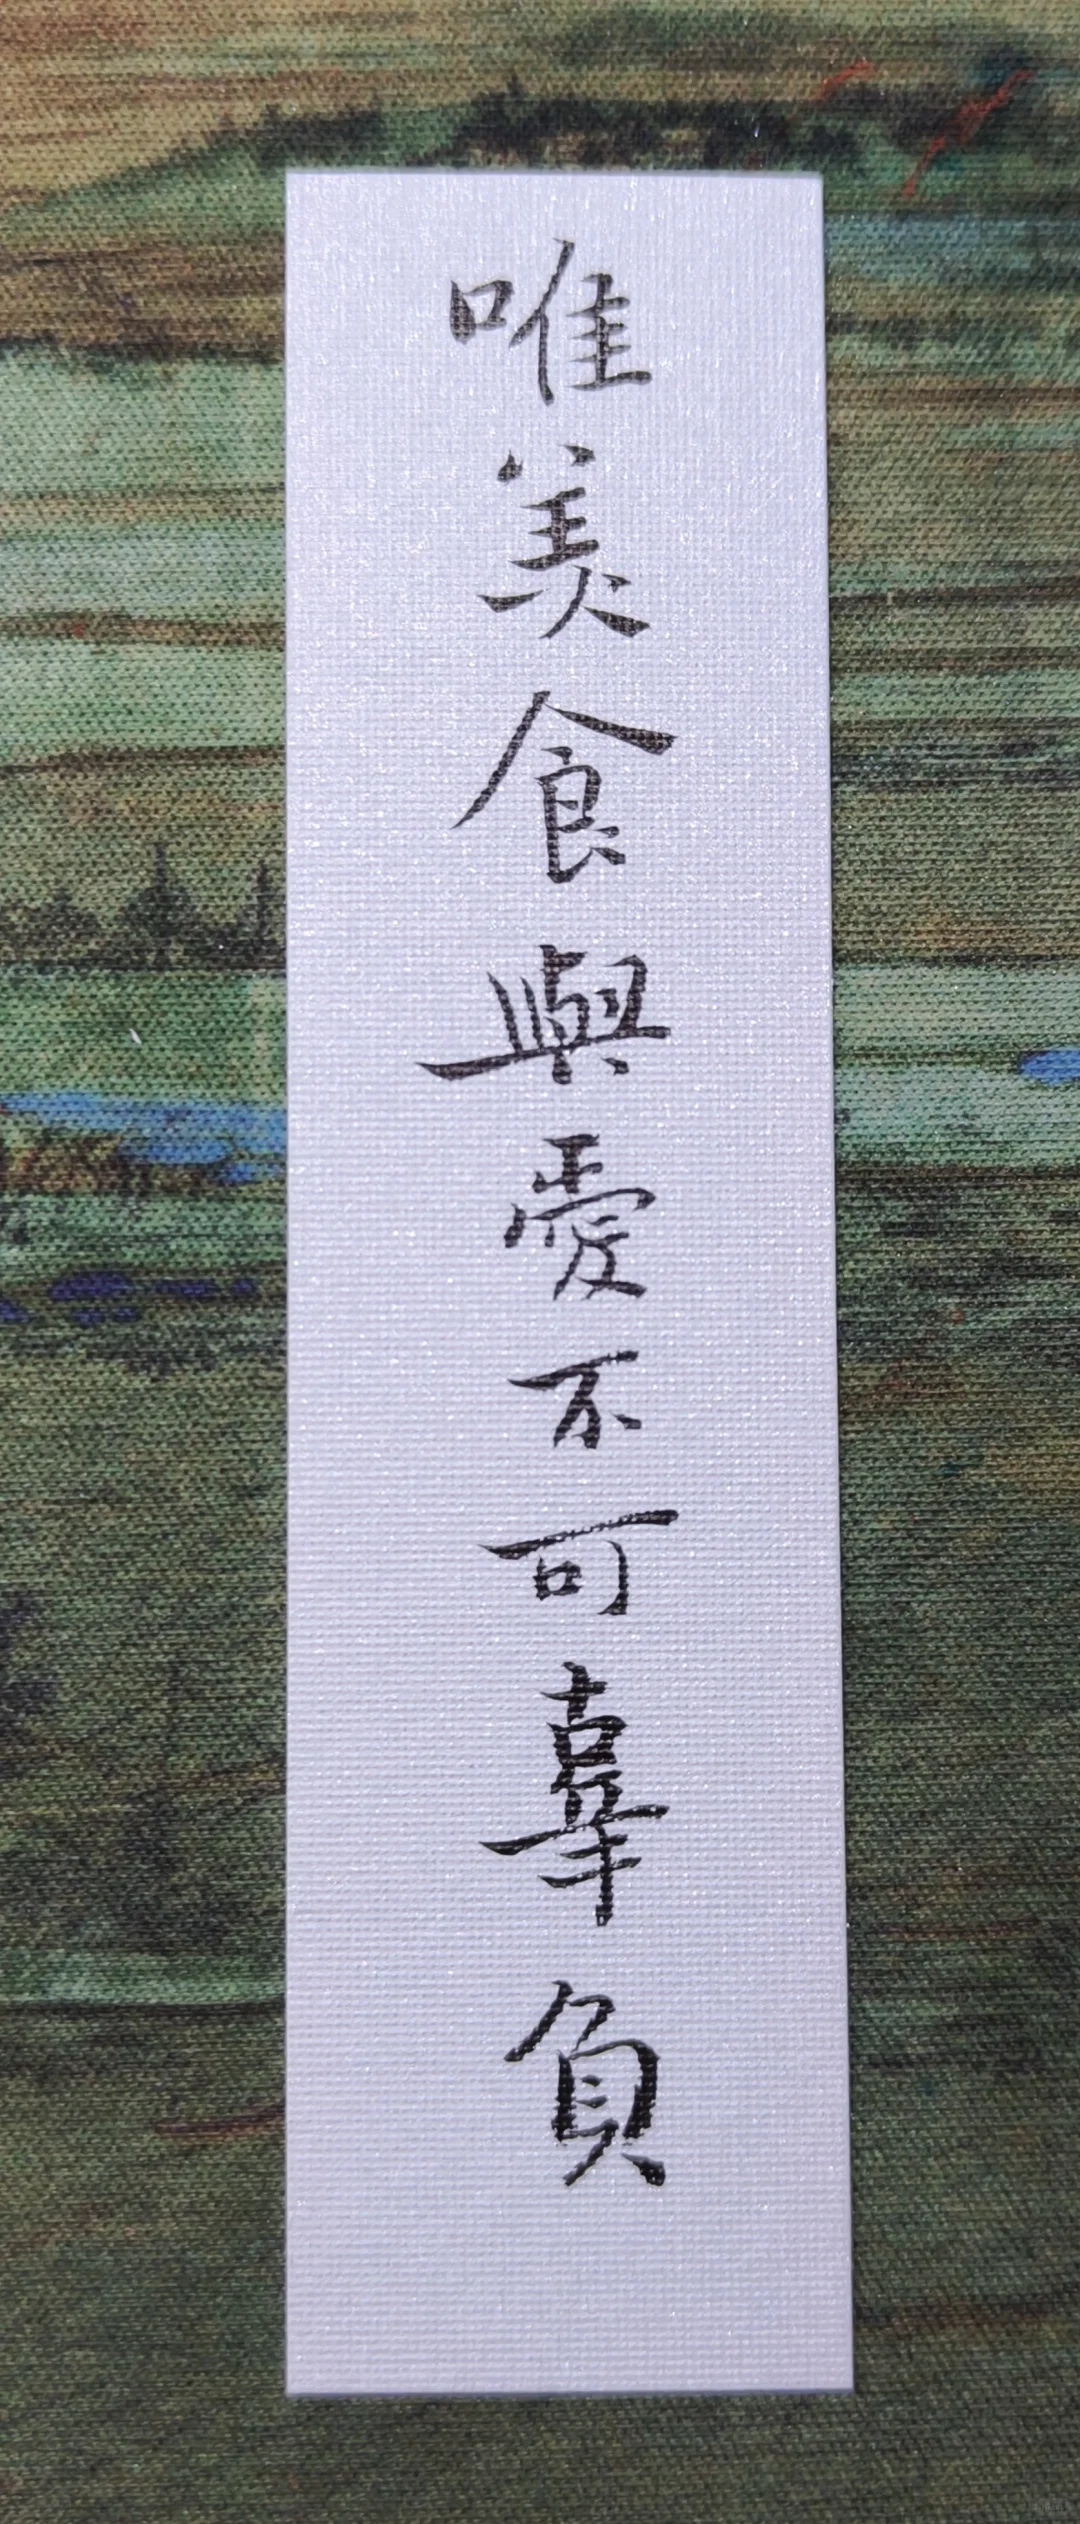 唯美食與愛不可辜負